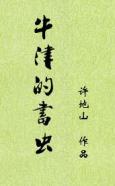 牛津的書虫
许地山 作品